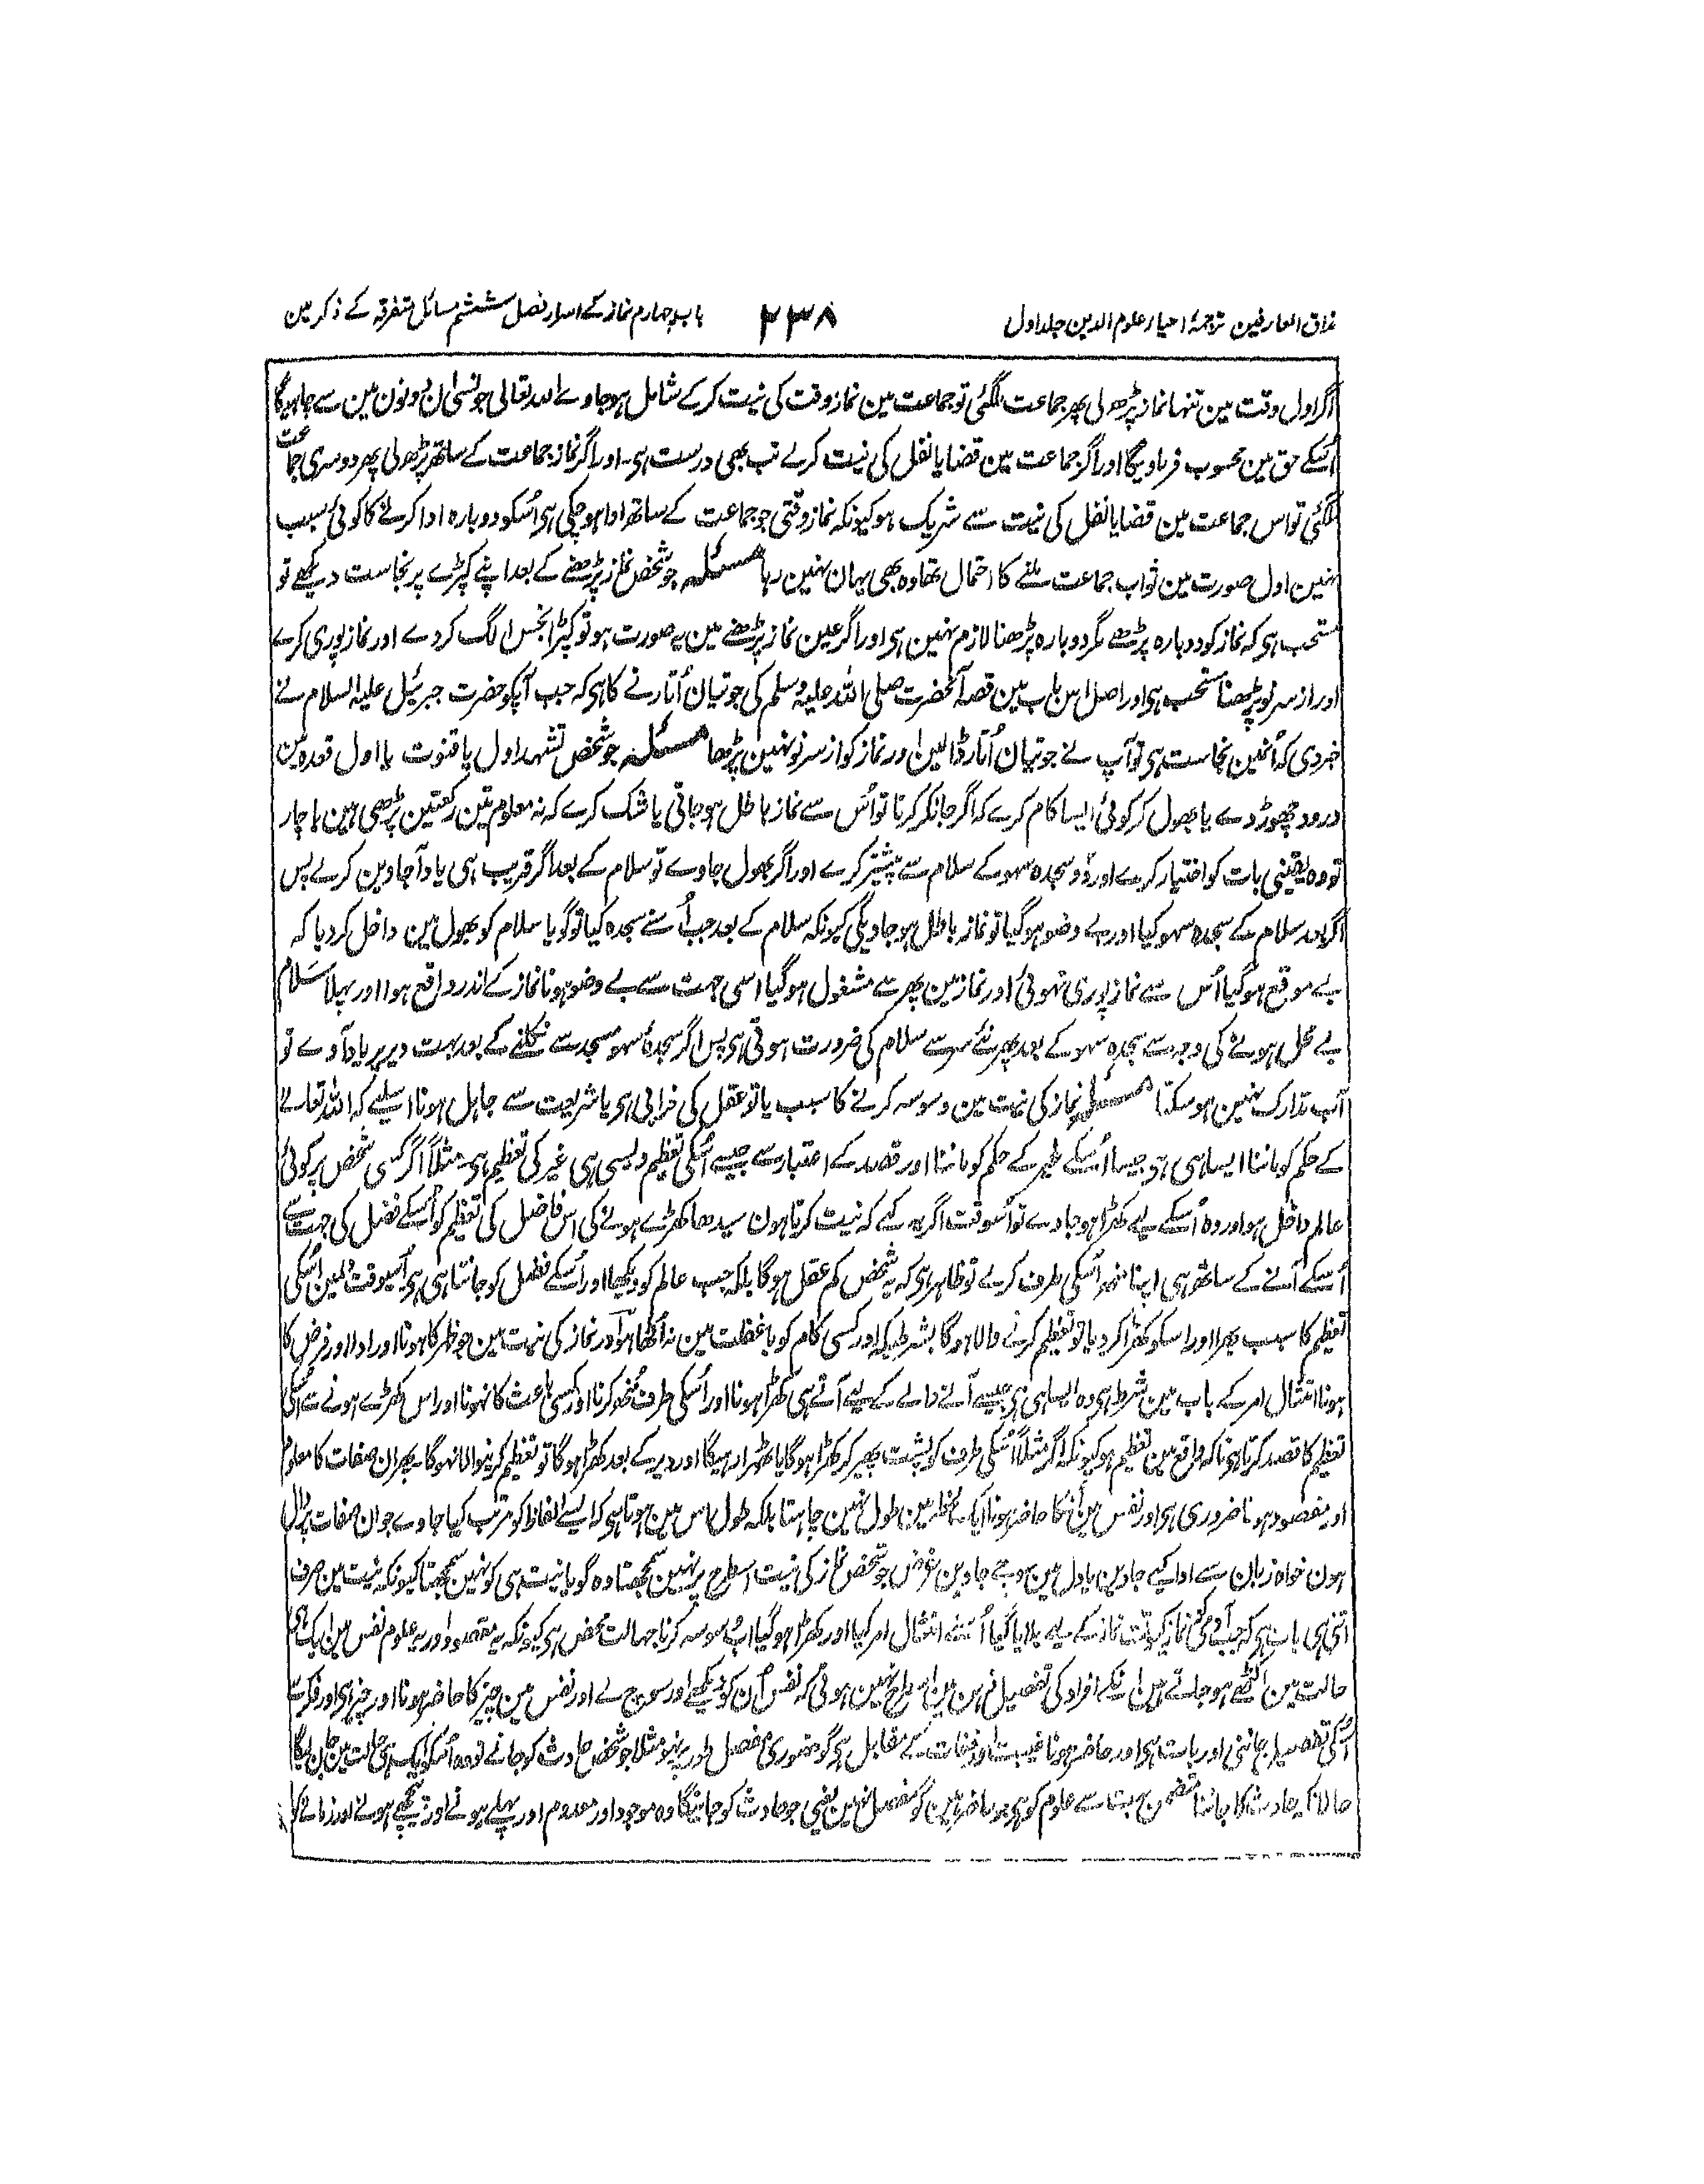 مذاق العارفین ترجمۂ احیاء علوم الدین جلد اول
۲۳۸
باب چہارم نماز کے اسرار فصل ششم مسائل متفرقہ کے ذکر مین
اگر اول وقت مین تنہا نماز پڑھ لی پھر جماعت ملگئی تو جماعت مین نماز وقت کی نیت کر کے شامل ہوجاوے اللہ تعالی جونسی ان دونون مین سے چاہیگا
اُسکے حق مین محسوب فرماویگا اور اگر جماعت مین قضا یا نفل کی نیت کرلے تب بھی درست ہی۔ اور اگر نماز جماعت کے ساتھ پڑھ لی پھر دوسری جماعت
ملگئی تو اس جماعت مین قضا یا نفل کی نیت سے شریک ہو کیونکہ نماز وقتی جو جماعت کے ساتھ ادا ہوچکی ہی اُسکو دوبارہ ادا کرنے کا کوئی سبب
نہین اول صورت مین ثواب جماعت ملنے کا احتمال تھا وہ بھی یہان نہین رہا مسئلہ جو شخص نماز پڑھنے کے بعد اپنے کپڑے پر نجاست دیکھے تو
مستحب ہی کہ نماز کو دوبارہ پڑھے مگر دوبارہ پڑھنا لازم نہین ہی اور اگر عین نماز پڑھنے مین یہ صورت ہو تو کپڑا نجس الگ کردے اور نماز پوری کرے
اور از سر نو پڑھنا مستحب ہی اور اصل اس باب مین قصہ آنحضرت صلی اللہ علیہ وسلم کی جوتیان اُتارنے کا ہی کہ جب آپکو حضرت جبرئیل علیہ السلام نے
خبر دی کہ اُنمین نجاست ہی تو آپ نے جوتیان اُتار ڈالین اور نماز کو از سر نو نہین پڑھا مسئلہ جو شخص تشہد اول یا قنوت یا اول قعدہ مین
درود چھوڑ دے یا بھول کر کوئی ایسا کام کرے کہ اگر جانکر کرتا تو اُس سے نماز باطل ہوجاتی یا شک کرے کہ نہ معلوم تین رکعتین پڑھی ہین یا چار
تو وہ یقینی بات کو اختیار کرے اور دو سجدہ سہو کے سلام سے پیشتر کرے اور اگر بھول جاوے تو سلام کے بعد اگر قریب ہی یاد آجاوین کرلے پس
اگر بعد سلام کے سجدہ سہو کیا اور بے وضو ہوگیا تو نماز باطل ہوجاویگی کیونکہ سلام کے بعد جب اُسنے سجدہ کیا تو گویا سلام کو بھول مین داخل کر دیا کہ
بے موقع ہوگیا اُس سے نماز پوری نہوئی اور نماز مین پھر سے مشغول ہوگیا اسی جہت سے بے وضو ہونا نماز کے اندر واقع ہوا اور پہلا سلام
بے محل ہونے کی وجہ سے سجدہ سہو کے بعد پھر نئے سر سے سلام کی ضرورت ہوتی ہی پس اگر سجدۂ سہو مسجد سے نکلنے کے بعد بہت دیر پر یاد آوے تو
اب تدارک نہین ہوسکتا مسئلہ نماز کی نیت مین وسوسہ کرنے کا سبب یا تو عقل کی خرابی ہی یا شریعت سے جاہل ہونا اسلیے کہ اللہ تعالے
کے حکم کو ماننا ایسا ہی ہی جیسا اُسکے غیر کے حکم کو ماننا اور قصد کے اعتبار سے جیسے اُسکی تعظیم ویسی ہی غیر کی تعظیم ہی۔ مثلاً اگر کسی شخص پر کوئی
عالم داخل ہو اور وہ اُسکے لیے کھڑا ہوجاوے تو اُسوقت اگر یہ کہے کہ نیت کرتا ہون سیدھا کھڑے ہونے کی اس فاضل کی تعظیم کو اُسکے فضل کی جہت سے
اُسکے آنے کے ساتھ ہی اپنا منھ اُسکی طرف کرکے تو ظاہر ہی کہ یہ شخص کم عقل ہوگا بلکہ جب عالم کو دیکھا اور اُسکے فضل کو جانتا ہی ہی اُسیوقت دلمین اُسکی
تعظیم کا سبب پھرا اور اسکو کھڑا کر دیا تو تعظیم کرنے والا ہوگا بشرطیکہ اور کسی کام کو یا غفلت مین نہ اُٹھا ہو اور نماز کی نیت مین جو ظہر کا ہونا اور ادا اور فرض کا
ہونا امتثال امر کے باب مین شرط ہی وہ ایسا ہی ہی جیسے آنے والے کے لیے آتے ہی کھڑا ہونا اور اُسکی طرف مُنھ کرنا اور کسی باعث کا نہونا اور اس کھڑے ہونے سے اُسکی
تعظیم کا قصد کرنا ہی تاکہ واقع مین تعظیم ہو کیونکہ اگر مثلاً اُسکی طرف کو پشت پھیر کر کھڑا ہوگا یا ٹھہرا رہیگا اور دیر کے بعد کھڑا ہوگا تو تعظیم کرنیوالا نہوگا۔ پھر ان صفات کا معلوم
اور مقصود ہونا ضروری ہی اور نفس مین اُنکا حاضر ہونا ایک لحظہ مین طول نہین چاہتا بلکہ طول اس مین ہوتا ہی کہ ایسے الفاظ کو مرتب کیا جاوے جو ان صفات پر دال
ہون خواہ زبان سے ادا کیے جاوین یا دل مین سوچے جاوین غرض جو شخص نماز کی نیت اسطرح پر نہین سمجھتا وہ گویا نیت ہی کو نہین سمجھتا کیونکہ نیت مین صرف
اتنی ہی بات ہی کہ جب آدمی نماز کے وقت نماز کے لیے بلایا گیا اُسنے امتثال امر کیا اور کھڑا ہوگیا اب وسوسہ کرنا جہالت محض ہی کیونکہ یہ مقصود اور یہ علوم نفس مین ایک ہی
حالت مین اکٹھے ہوجاتے ہین انکے افراد کی تفصیل ذہن مین اسطرح نہین ہوتی کہ نفس اُن کو دیکھے اور سوچ لے اور نفس مین چیز کا حاضر ہونا اور چیز ہی اور فکر سے
اُسکی تفصیل جاننی اور بات ہی اور حاضر ہونا غیبت اور غفلت کے مقابل ہی گو حضوری مفصل طور پر نہو مثلاً جو شخص حادث کو جانے تو وہ اُسکو ایک ہی حالت مین جان لیگا
حالانکہ حادث کا جاننا متضمن بہت سے علوم کو ہی جو حاضر ہین گو مفصل نہین یعنی جو حادث کو جانیگا وہ موجود اور معدوم اور پہلے ہونے اور پیچھے ہونے اور زمانے کو